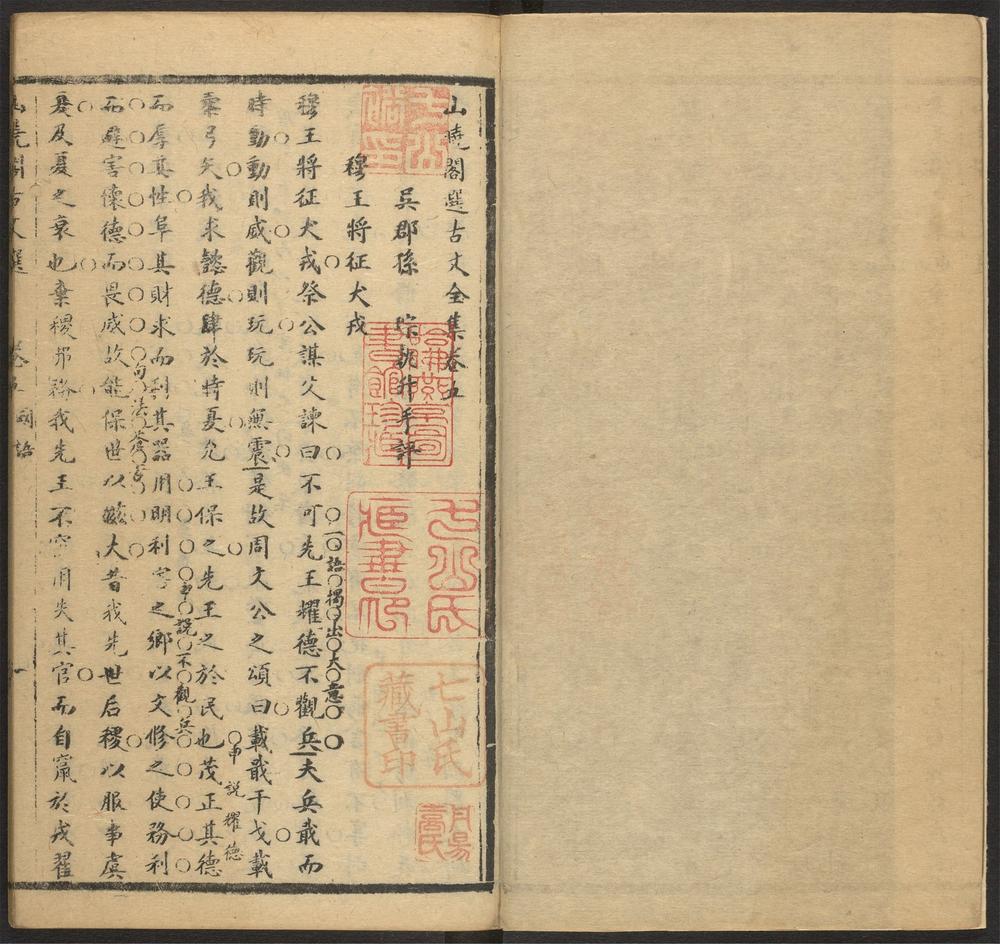 山曉閣選古文全集卷五
吳郡孫琮執升手評
穆王將征犬戎
穆王將征犬戎祭公謀父諫曰不可先王耀德不觀兵夫兵戢而
一語揭出大意
時動動則威觀則玩玩則無震是故周文公之頌曰載戢干戈載
申說耀德
櫜弓矢我求懿德肆於時夏允王保之先王之於民也茂正其德
申說不觀兵
而厚其性阜其財求而利其器用明利害之鄉以文修之使務利
而避害懷德而畏威故能保世以滋大昔我先世后稷以服事虞
句法
夏及夏之衰也棄稷弗務我先王不窋用失其官而自竄於戎翟
山曉閣古文選
卷五 國語
一
哈佛燕京圖書館珍藏
七山氏藏書印